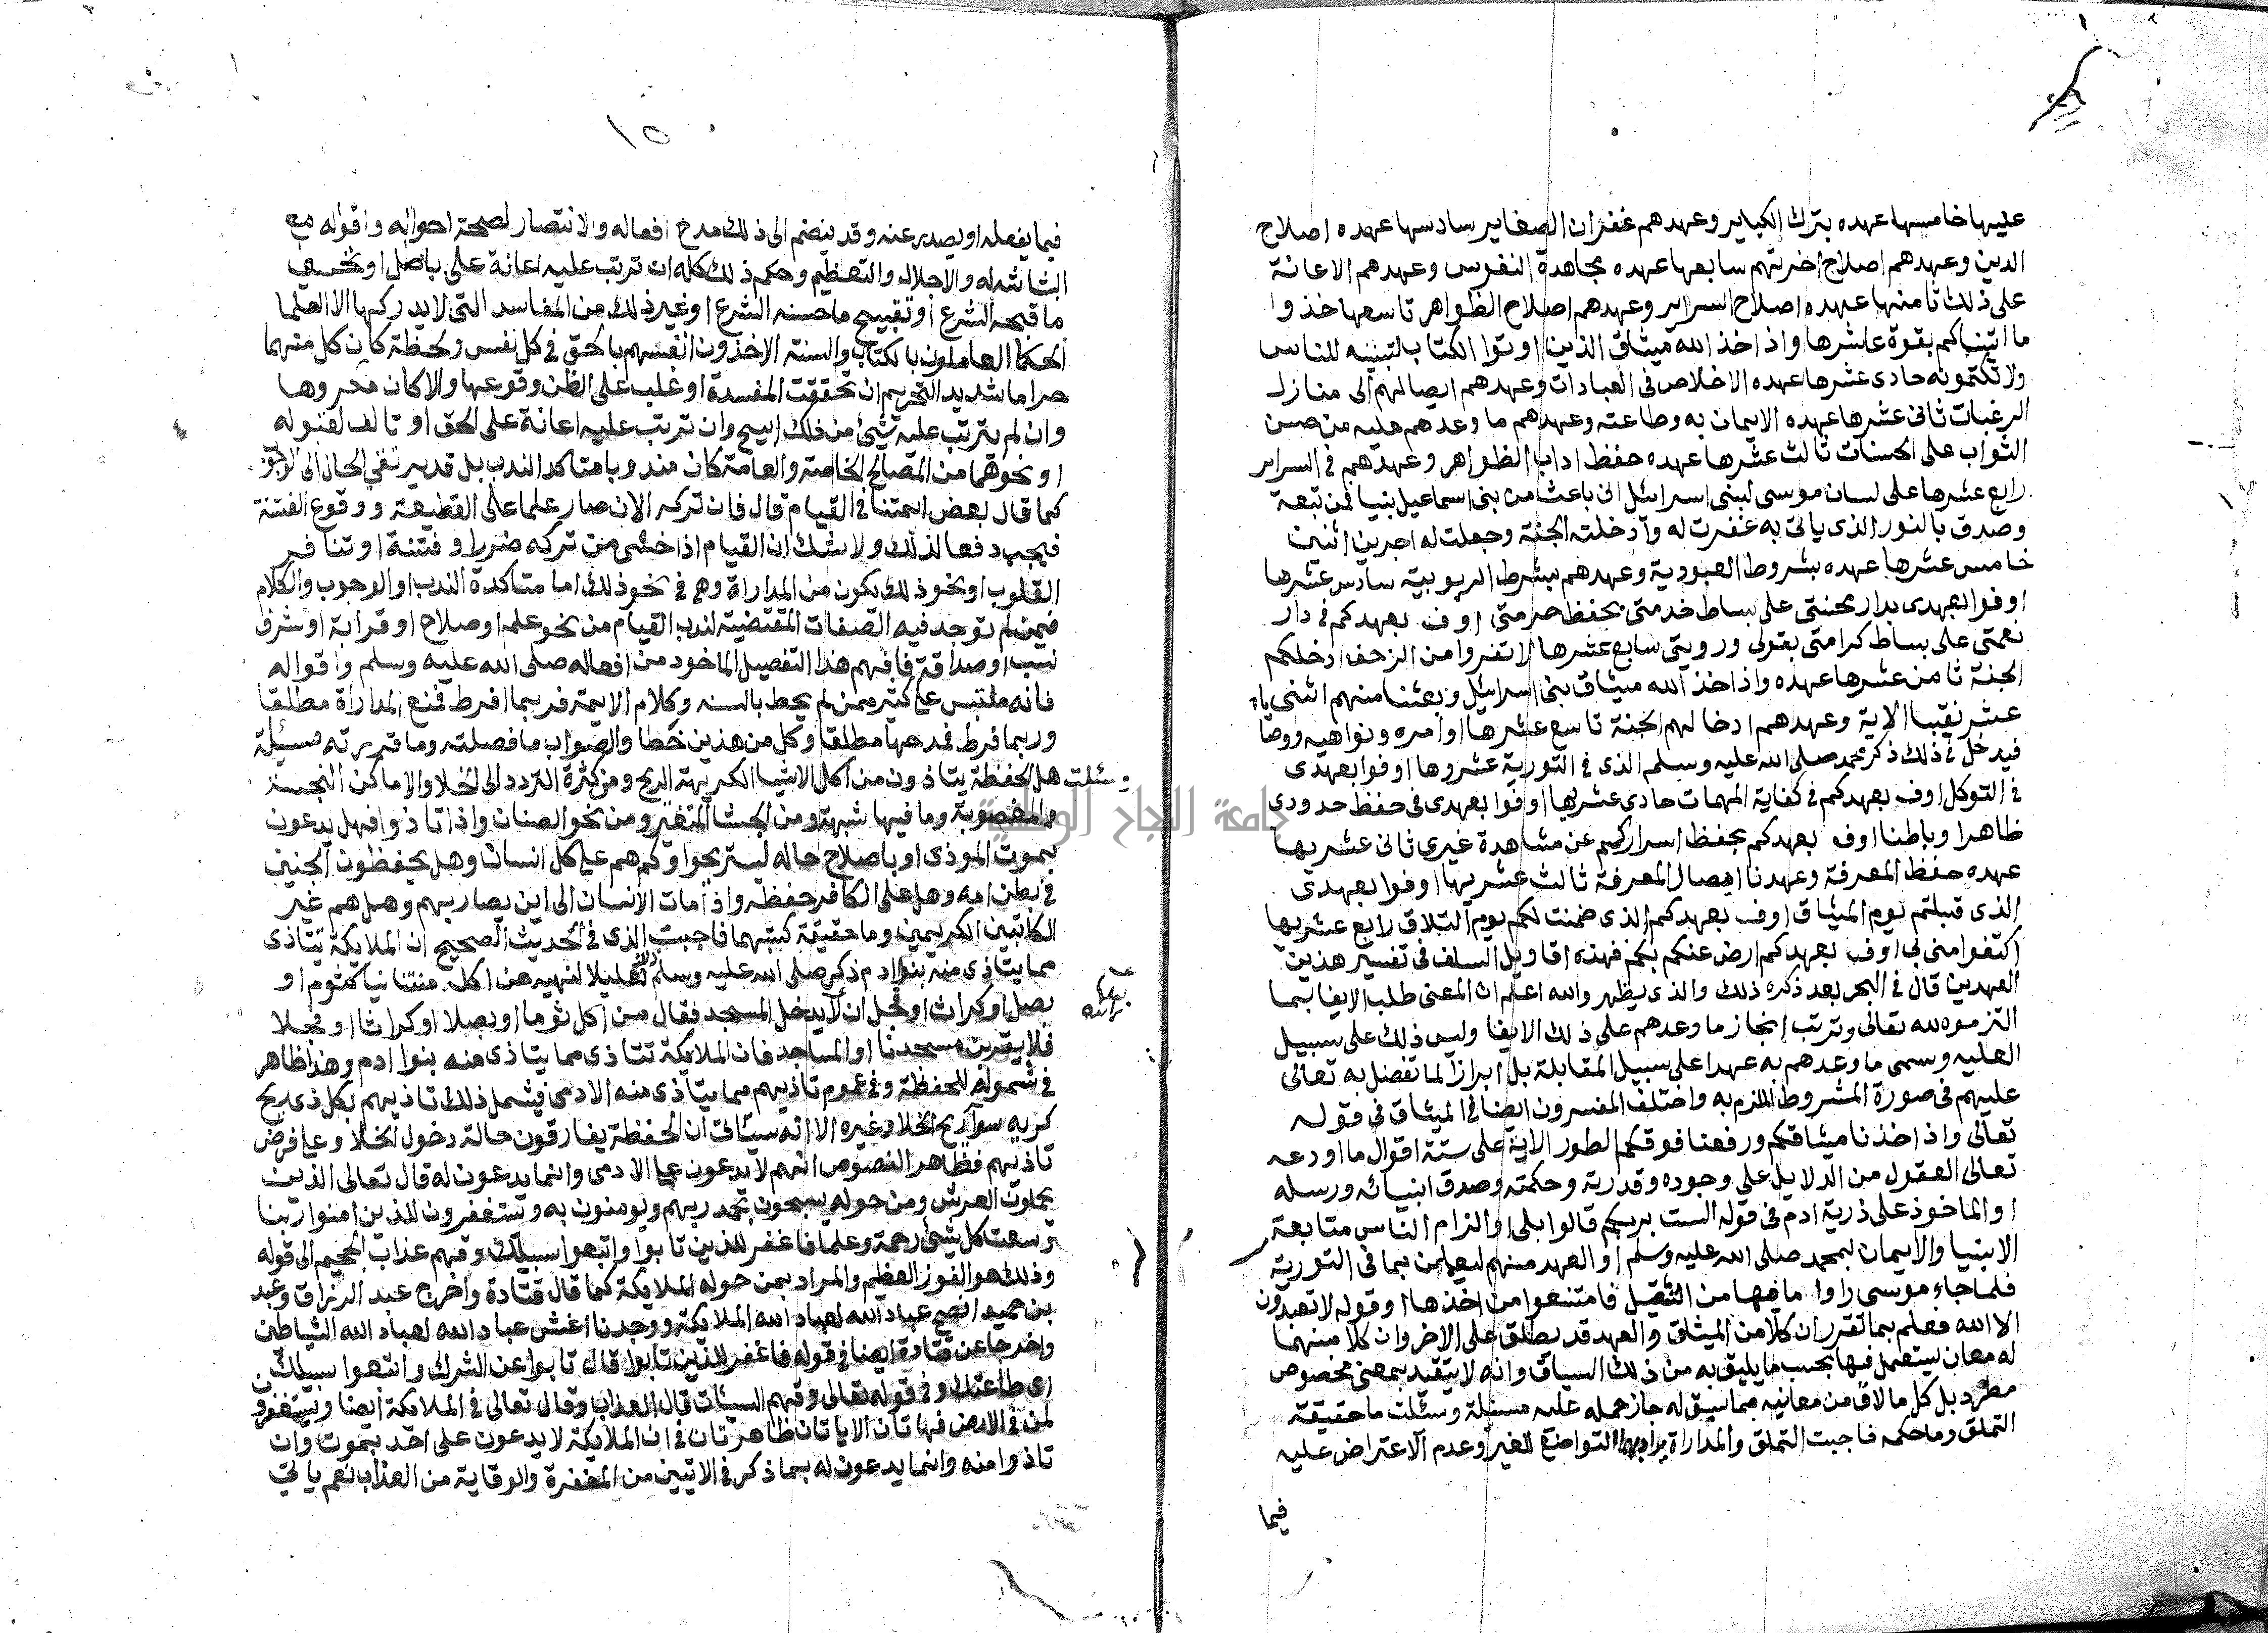 عليها خامسها عهده بترك الكباير وعهدهم غفران الصغاير سادسها عهده اصلاح
الدين وعهدهم اصلاح اخرتهم سابعها عهده مجاهدة النفوس وعهدهم الاعانة
على ذلك ثامنها عهده اصلاح السراير وعهدهم اصلاح الظواهر تاسعها خذوا
ما اتيناكم بقوة عاشرها واذ اخذ الله ميثاق الذين اوتوا الكتاب لتبيننه للناس
ولا تكتمونه حادى عشرها عهده الاخلاص في العبادات وعهدهم ايصالهم الى منازل
الرغبات ثانى عشرها عهده الايمان به وطاعته وعهدهم ما وعدهم عليه من حسن
الثواب على الحسنات ثالث عشرها عهده حفظ اداب الظواهر وعهدهم في السراير
رابع عشرها على لسان موسى لبنى اسرائيل انى باعث من بنى اسماعيل نبيا فمن تبعه
وصدق بالنور الذى ياتى به غفرت له وادخلته الجنة وجعلت له اجرين اثنين
خامس عشرها عهده بشروط العبودية وعهدهم بشرط الربوبية سادس عشرها
اوفوا بعهدى بدار محنتى على بساط خدمتى بحفظ حرمتى اوف بعهدكم في دار
نعمتى على بساط كرامتى بقولى ورويتى سابع عشرها لا تفروا من الزحف ادخلكم
الجنة ثامن عشرها عهده واذ اخذ الله ميثاق بنى اسرائيل وبعثنا منهم اثنى
عشر نقيبا الاية وعهدهم ادخالهم الجنة تاسع عشرها اوامره ونواهيه ووصاياه
فيدخل في ذلك ذكر محمد صلى الله عليه وسلم الذى في التورية عشروها اوفوا بعهدى
في التوكل اوف بعهدكم في كفاية المهمات حادى عشريها اوفوا بعهدى في حفظ حدودى
ظاهرا وباطنا اوف بعهدكم بحفظ اسراركم عن مشاهدة غيرى ثانى عشريها
عهده حفظ المعرفة وعهدنا ايصال المعرفة ثالث عشريها اوفوا بعهدى
الذى قبلتم يوم الميثاق اوف بعهدكم الذى ضمنت لكم يوم التلاق رابع عشريها
اكتفوا منى بى اوف بعهدكم ارض عنكم بكم فهذه اقاويل السلف في تفسير هذين
العهدين قال في البحر بعد ذكره ذلك والذى يظهر والله اعلم ان المعنى طلب الايفا بما
التزموه لله تعالى وترتب انجاز ما وعدهم على ذلك الايفا وليس ذلك على سبيل
العليه وسمى ما وعدهم به عهدا على سبيل المقابلة بل ابرازا لما تفضل به تعالى
عليهم في صورة المشروط الملتزم به واختلف المفسرون ايضا في الميثاق في قوله
تعالى واذ اخذنا ميثاقكم ورفعنا فوقكم الطور الاية على ستة اقوال ما اودعه
تعالى العقول من الدلايل على وجوده وقدرته وحكمته وصدق انبيائه ورسله
او الماخوذ على ذرية ادم في قوله الست بربكم قالوا بلى او الزام الناس متابعة
الانبيا والايمان بمحمد صلى الله عليه وسلم او العهد منهم ليعلمن بما في التورية
فلما جاء موسى راوا ما فيها من التثقيل فامتنعوا من اخذها او قوله لا تعبدون
الا الله فعلم بما تقرر ان كلا من الميثاق والعهد قد يطلق على الاخر وان كلا منهما
له معان يستعمل فيها بحسب ما يليق به من ذلك السياق وانه لا يتقيد بمعنى مخصوص
مطرد بل كل ما لاق من معانيه بما سيق له جاز حمله عليه مسئلة وسئلت ما حقيقة
التملق وما حكمه فاجبت التملق والمداراة يراد بهما التواضع للغير وعدم الاعتراض عليه
فيما
١٥
فيما يفعله او يصدر عنه وقد ينضم الى ذلك مدح افعاله والانتصار لصحة احواله واقواله مع
البشاشه له والاجلال والتعظيم وحكم ذلك كله ان ترتب عليه اعانة على باطل او تحسين
ما قبحه الشرع او تقبيح ما حسنه الشرع او غير ذلك من المفاسد التى لا يدركها الا العلما
الحكما العاملون بالكتاب والسنة الاخذون انفسهم بالحق في كل نفس ولحظة كان كل منهما
حراما شديد التحريم ان تحققت المفسدة او غلب على الظن وقوعها والا كان مكروها
وان لم يترتب عليه شئ من ذلك ابيح وان ترتب عليه اعانة على الحق او تالف لقبوله
او نحوهما من المصالح الخاصة والعامة كان مندوبا متاكد الندب بل قد يرتقي الحال الى الوجوب
كما قال بعض ائمتنا في القيام قال فان تركه الان صار علما على القطيعة ووقوع الفتنة
فيجب دفعا لذلك ولا شك ان القيام اذا خشى من تركه ضررا وفتنة او تنافر
القلوب او نحو ذلك يكون من المداراة وهى في نحو ذلك اما متاكدة الندب او الوجوب والكلام
فيمن لم توجد فيه الصفات المقتضية لندب القيام من نحو علم او صلاح او قرابة او شرف
نسب او صداقة فافهم هذا التفصيل الماخود من افعاله صلى الله عليه وسلم واقواله
فانه ملتبس على كثير ممن لم يحط بالسنه وكلام الايمة فربما افرط فمنع المداراة مطلقا
وربما فرط فمدحها مطلقا وكل من هذين خطا والصواب ما فصلته وما قررته مسيئلة
وسئلت هل الحفظة يتاذون من اكل الاشيا الكريهة الريح ومن كثرة التردد الى الخلا والاماكن النجسة
والمغصوبة وما فيها شبهة ومن الجشا المتغير ومن نحو الصنان واذا تاذوا فهل يدعون
بموت الموذى او باصلاح حاله ليستريحوا وكم هم على كل انسان وهل يحفظون الجنين
في بطن امه وهل على الكافر حفظة واذا مات الانسان الى اين يصار بهم وهل هم غير
الكاتبين الكريمين وما حقيقة كتبتهما فاجبت الذى في الحديث الصحيح ان الملايكة تتاذى
مما يتاذى منه بنوا ادم ذكر صلى الله عليه وسلم ذلك تعليلا لنهيه من اكل منتنا نيا كثوم او
بصل او كراث او فجل ان لا يدخل المسجد فقال من اكل ثوما او بصلا او كراثا او فجلا
فلا يقربن مسجدنا او المساجد فان الملايكة تتاذى مما يتاذى منه بنوا ادم وهذا ظاهر
في شموله للحفظة وفي عموم تاذيهم مما يتاذى منه الادمى فيشمل ذلك تاذيهم بكل ذى ريح
كريه سوا ريح الخلا وغيره الا انه سيئاتى ان الحفظة يفارقون حالة دخول الخلا وعلى فرض
تاذيهم فظاهر النصوص انهم لا يدعون على الادمى وانما يدعون له قال تعالى الذين
يحملون العرش ومن حوله يسبحون بحمد ربهم ويومنون به ويستغفرون للذين امنوا ربنا
وسعت كل شئ رحمة وعلما فاغفر للذين تابوا واتبعوا سبيلك وقهم عذاب الجحيم الى قوله
وذلك هو الفوز العظيم والمراد بمن حوله الملايكة كما قال قتادة واخرج عبد الرزاق وعبد
بن حميد انصح عباد الله لعباد الله الملايكة ووجدنا اغش عباد الله لعباد الله الشياطين
واخرجا عن قتادة ايضا في قوله فاغفر للذين تابوا قال تابوا عن الشرك واتبعوا سبيلك
اى طاعتك وفي قوله تعالى وقهم السيئات قال العذاب وقال تعالى في الملايكة ايضا ويستغفرون
لمن في الارض فهاتان الايتان ظاهرتان في ان الملايكة لا يدعون على احد بموت وان
تاذوا منه وانما يدعون له بما ذكر في الايتين من المغفرة والوقاية من العذاب نعم ياتي
جامعة النجاح الوطنية